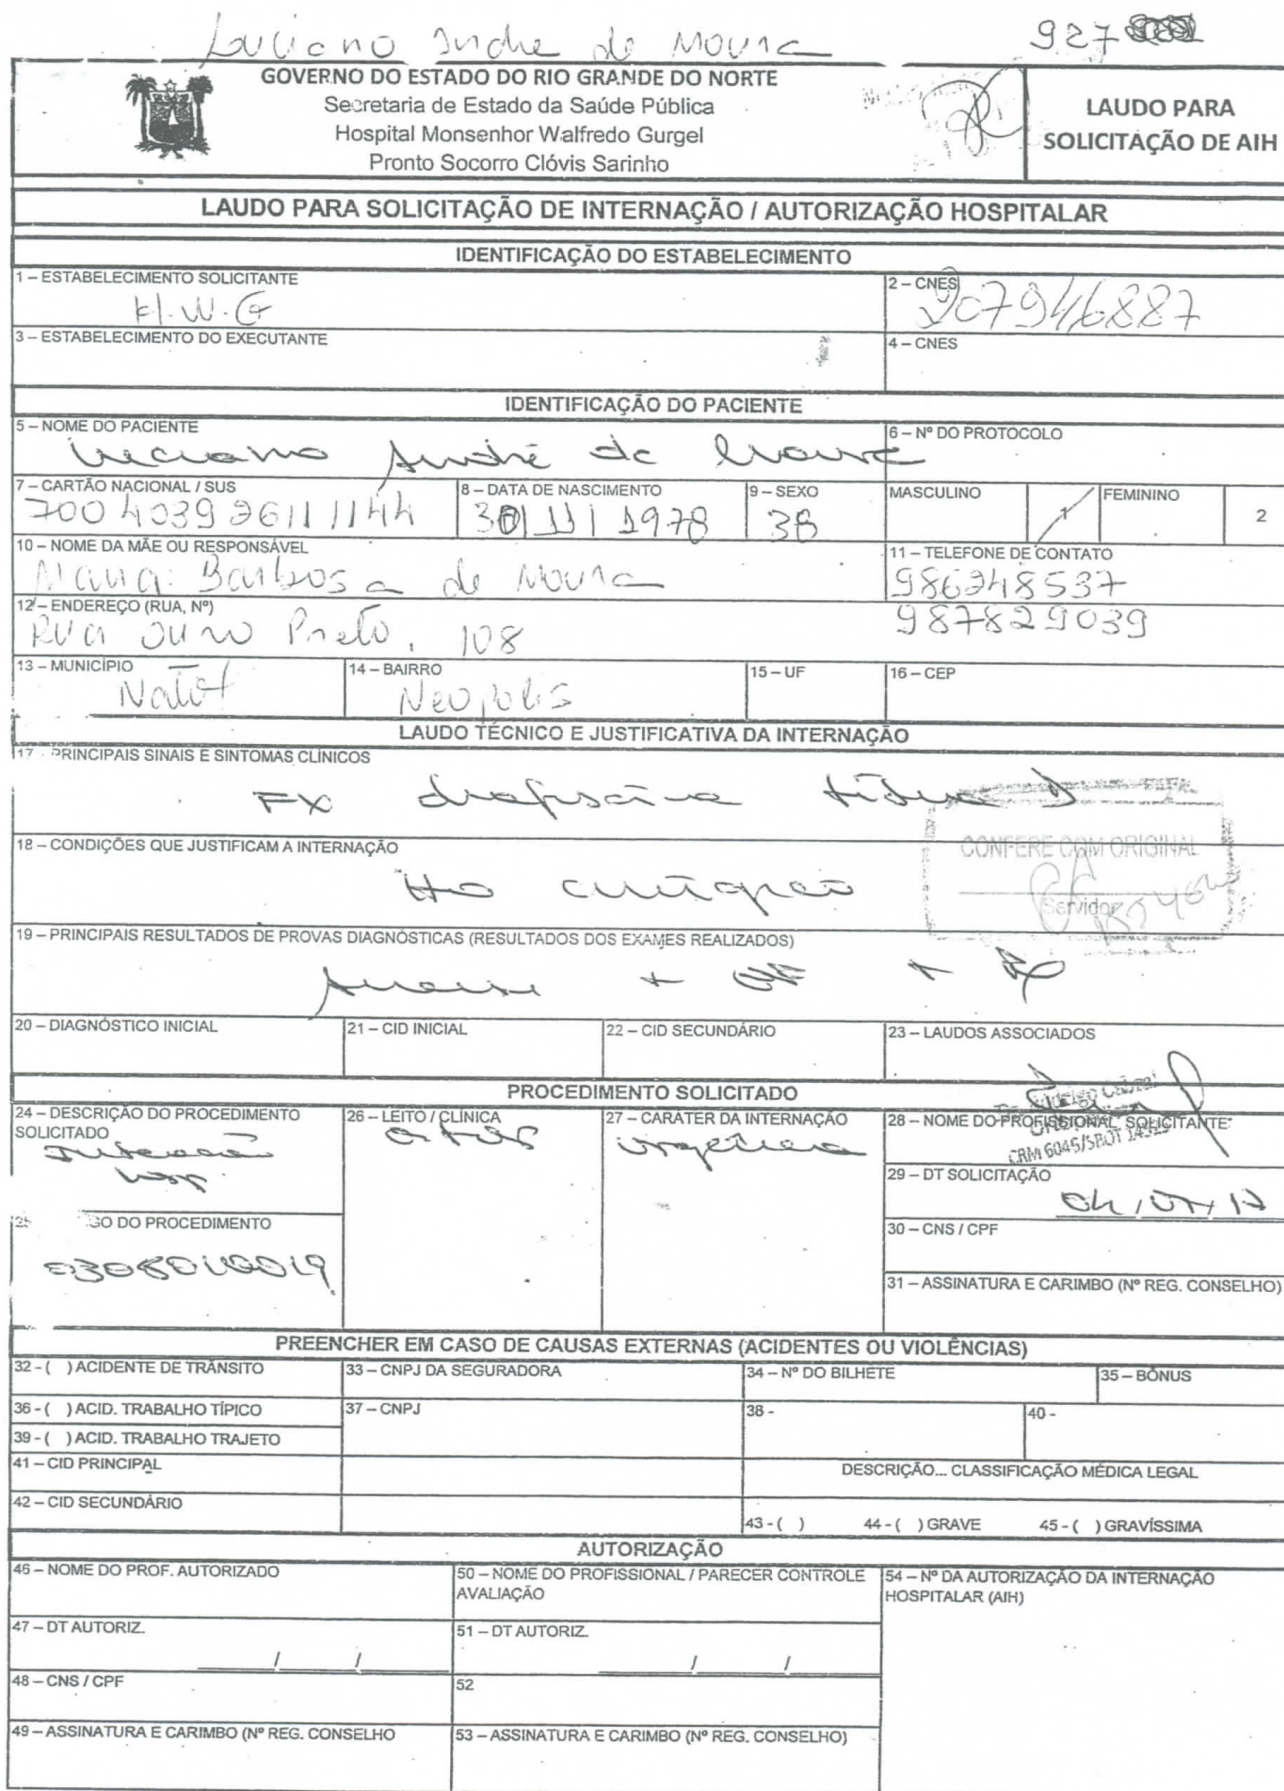 Luciano Andre de Moura 927
GOVERNO DO ESTADO DO RIO GRANDE DO NORTE
Secretaria de Estado da Saúde Pública
Hospital Monsenhor Walfredo Gurgel
Pronto Socorro Clóvis Sarinho
LAUDO PARA
SOLICITAÇÃO DE AIH
LAUDO PARA SOLICITAÇÃO DE INTERNAÇÃO / AUTORIZAÇÃO HOSPITALAR
IDENTIFICAÇÃO DO ESTABELECIMENTO
1 – ESTABELECIMENTO SOLICITANTE
H.W.G
2 – CNES
207946887
3 – ESTABELECIMENTO DO EXECUTANTE
4 – CNES
IDENTIFICAÇÃO DO PACIENTE
5 – NOME DO PACIENTE
Luciano André de Moura
6 – Nº DO PROTOCOLO
7 – CARTÃO NACIONAL / SUS
8 – DATA DE NASCIMENTO
30 11 1978
9 – SEXO
38
MASCULINO 1
FEMININO 2
10 – NOME DA MÃE OU RESPONSÁVEL
Maria Barbosa de Moura
11 – TELEFONE DE CONTATO
987829039
12 – ENDEREÇO (RUA, Nº)
Rua Ouro Preto, 108
13 – MUNICÍPIO
Natal
14 – BAIRRO
Neopolis
15 – UF
16 – CEP
LAUDO TÉCNICO E JUSTIFICATIVA DA INTERNAÇÃO
17 - PRINCIPAIS SINAIS E SINTOMAS CLÍNICOS
FX diafisária tíbia D
18 – CONDIÇÕES QUE JUSTIFICAM A INTERNAÇÃO
CONFERE COM ORIGINAL
Servidor
19 – PRINCIPAIS RESULTADOS DE PROVAS DIAGNÓSTICAS (RESULTADOS DOS EXAMES REALIZADOS)
+ +
20 – DIAGNÓSTICO INICIAL
21 – CID INICIAL
22 – CID SECUNDÁRIO
23 – LAUDOS ASSOCIADOS
PROCEDIMENTO SOLICITADO
24 – DESCRIÇÃO DO PROCEDIMENTO
SOLICITADO
26 – LEITO / CLÍNICA
27 – CARÁTER DA INTERNAÇÃO
urgência
28 – NOME DO PROFISSIONAL SOLICITANTE
CRM 6045/SBOT
29 – DT SOLICITAÇÃO
04/07/17
GO DO PROCEDIMENTO
30 – CNS / CPF
31 – ASSINATURA E CARIMBO (Nº REG. CONSELHO)
PREENCHER EM CASO DE CAUSAS EXTERNAS (ACIDENTES OU VIOLÊNCIAS)
32 - ( ) ACIDENTE DE TRÂNSITO
33 – CNPJ DA SEGURADORA
34 – Nº DO BILHETE
35 – BÔNUS
36 - ( ) ACID. TRABALHO TÍPICO
37 – CNPJ
38 -
40 -
39 - ( ) ACID. TRABALHO TRAJETO
41 – CID PRINCIPAL
DESCRIÇÃO... CLASSIFICAÇÃO MÉDICA LEGAL
42 – CID SECUNDÁRIO
43 - ( ) 44 - ( ) GRAVE 45 - ( ) GRAVÍSSIMA
AUTORIZAÇÃO
46 – NOME DO PROF. AUTORIZADO
50 – NOME DO PROFISSIONAL / PARECER CONTROLE
AVALIAÇÃO
54 – Nº DA AUTORIZAÇÃO DA INTERNAÇÃO
HOSPITALAR (AIH)
47 – DT AUTORIZ.
/ /
51 – DT AUTORIZ.
/ /
48 – CNS / CPF
52
49 – ASSINATURA E CARIMBO (Nº REG. CONSELHO
53 – ASSINATURA E CARIMBO (Nº REG. CONSELHO)